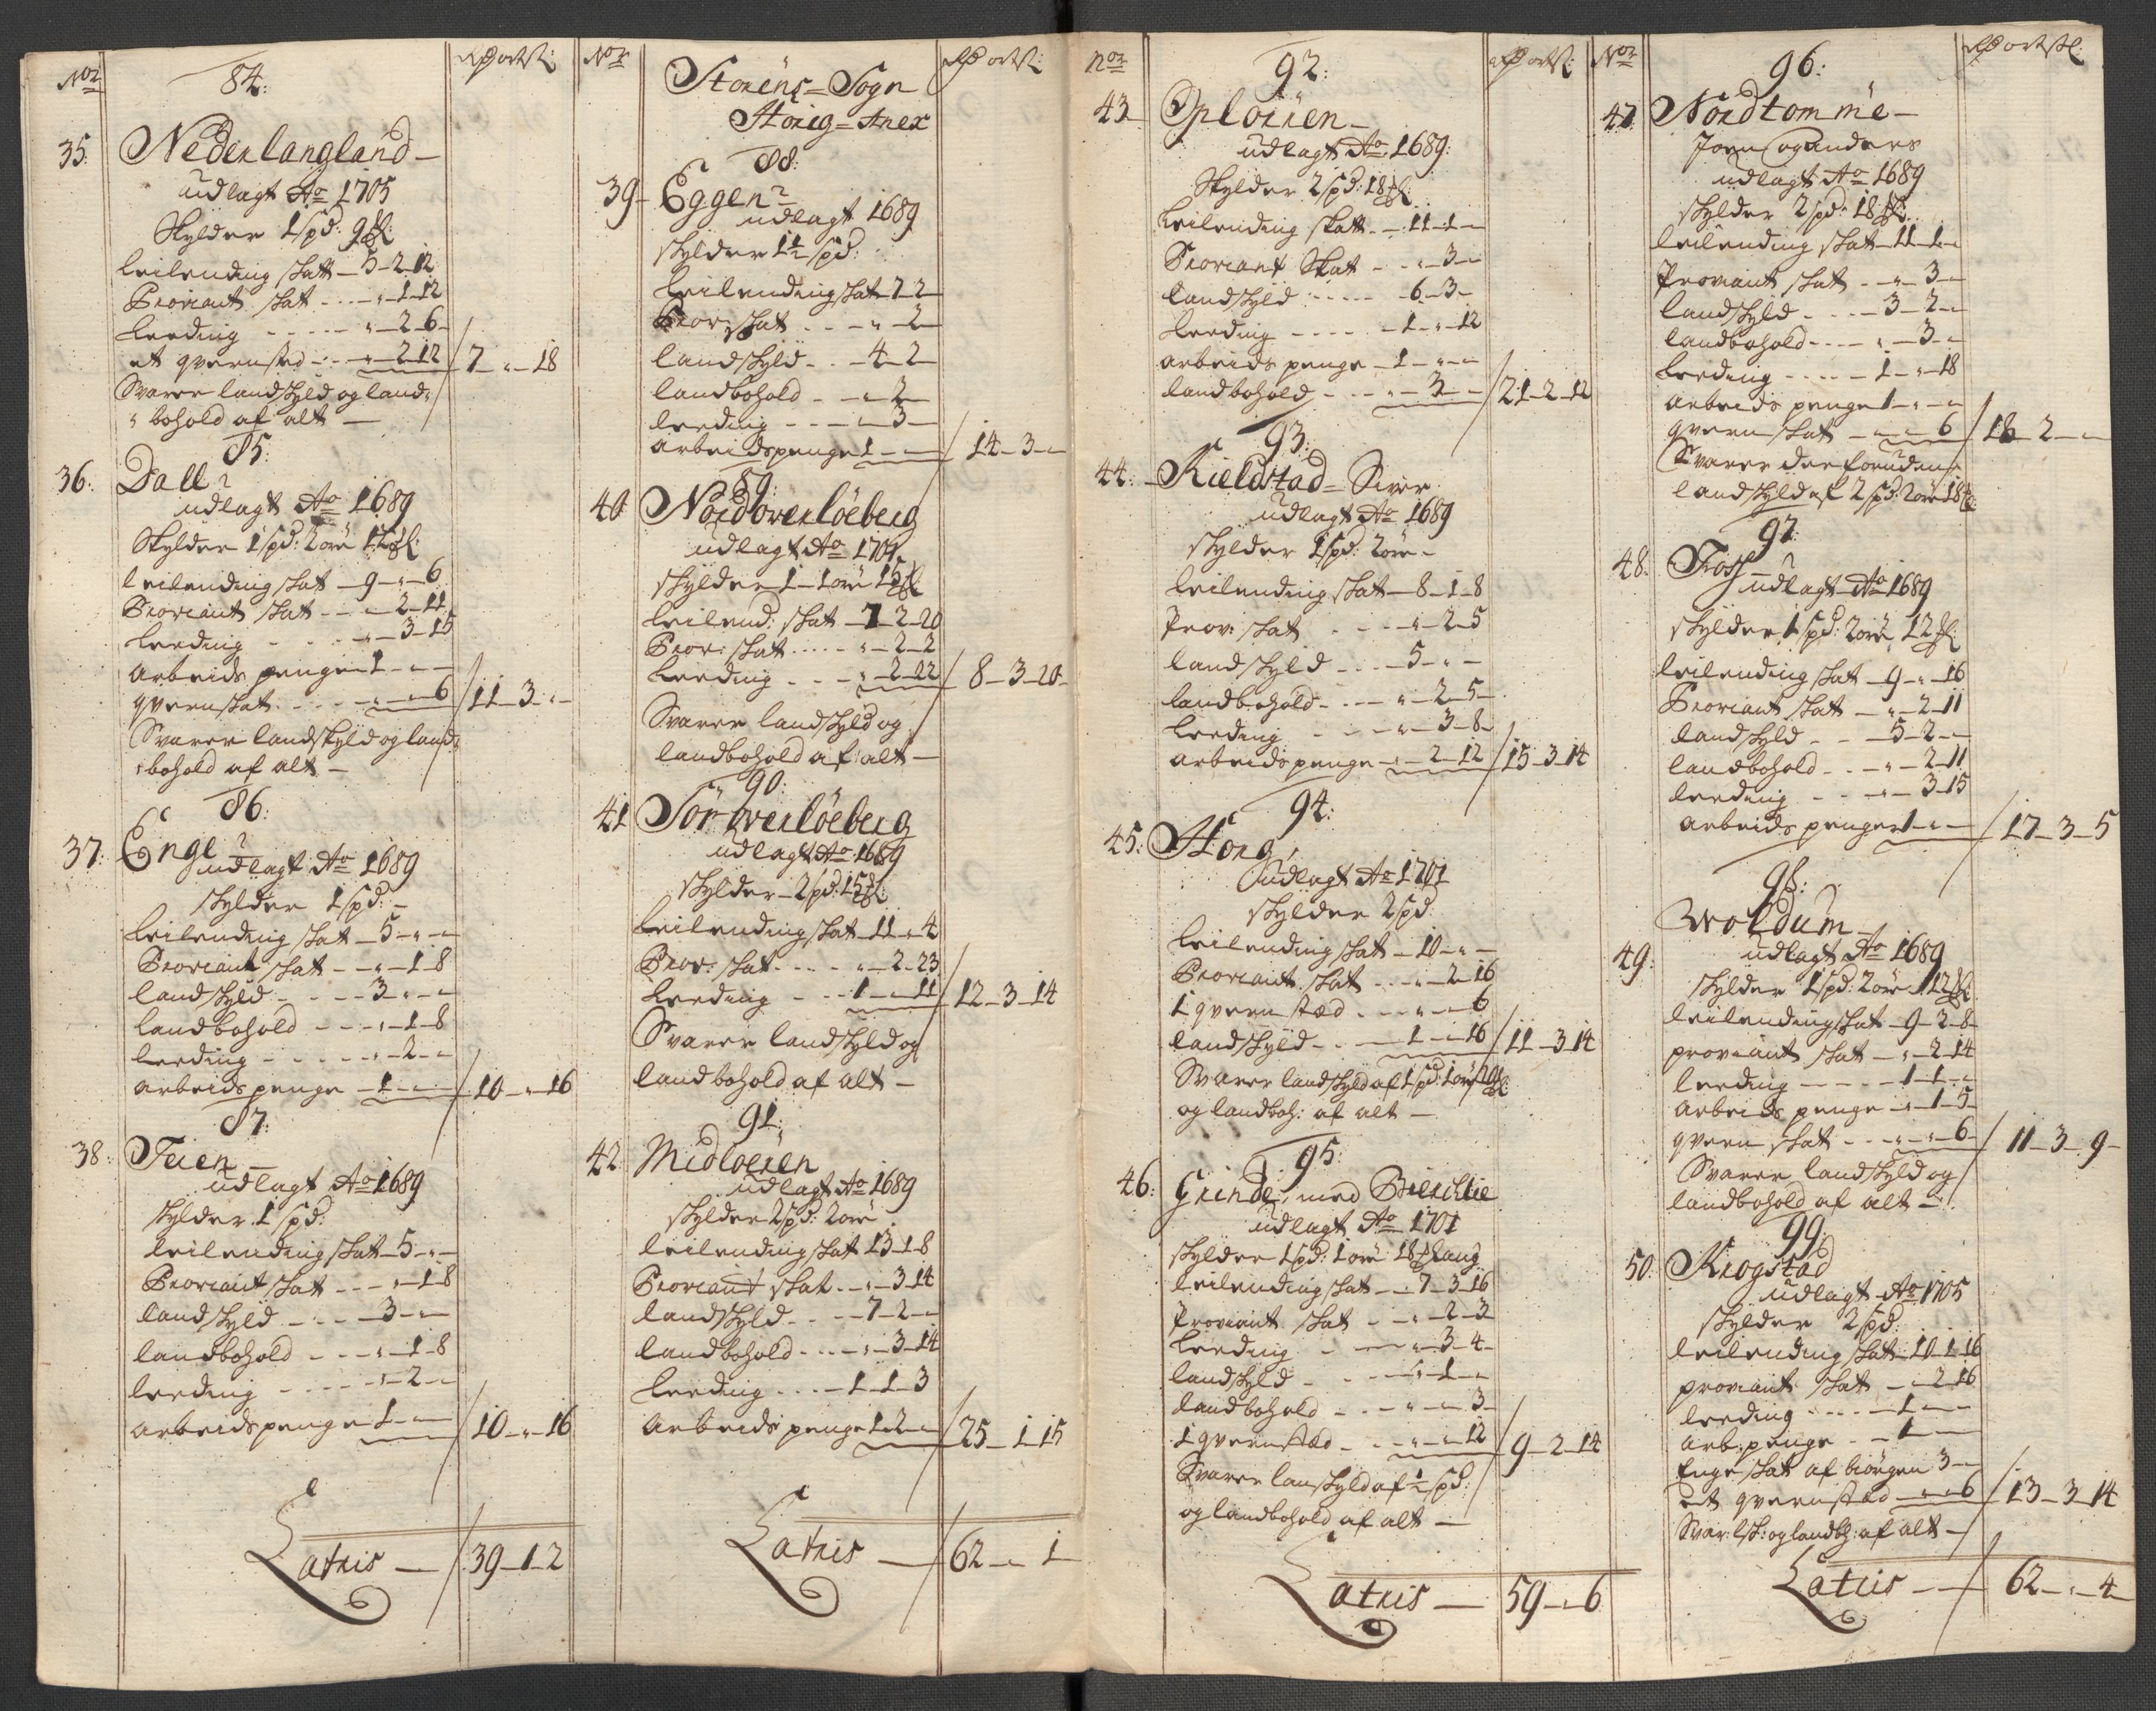 No
84:
35: Nederlangland
udlagt Ao 1705
Skylder 1 spd: 9
leilending skatt - 5-2-12
Proviant skat - „-1-12
leeding - „-2-6
et qvernsted - „-2-12 / 7-„-18
Svarer landskyld og land-
bohold af alt
85:
36: Dall
udlagt Ao 1689
Skylder 1 spd: 2 øre 12
leilending skat - 9-„-6
Proviant skat - „-2-11
leeding - „-3-15
arbeids penge 1-„-
qvernskat - „-„-6 / 11-3-„
Svarer landskyld og land
bohold af alt
86:
37: Enge
udlagt Ao 1689
skylder 1 spd:
leilending skat - 5-„-
Proviant skat - „-1-8
landskyld - 3-„-
landbohold - „-1-8
leeding - „-2-„
arbeids penge - 1-„- / 10-„-16
87:
38: Teien
udlagt Ao 1689
skylder 1 spd:
leilending skat - 5-„-
Proviant skat - „-1-8
landskyld - 3-„-
landbohold - „-1-8
leeding - „-2-„
arbeidspenge 1-„- / 10-„-16
Latris - / 39-1-2
No
Størens = Sogn
Horig = Anex
88:
39- Eggen
udlagt 1689
skylder 1½ spd:
leilending skat 7-2-
Prov: skat - „-2-
landskyld - 4-2-
landbohold - „-2-
leeding - „-3-
arbeidspenge 1-„- / 14-3-„
89:
40 Nordoverløeberg
udlagt Ao 1701
skylder 1-1 øre 15
leilend: skat - 7-2-20
Prov: skat - „-2-2
leeding - „-2-22 / 8-3-20-
Svarer landskyld og
landbohold af alt -
90:
41 Søroverløeberg
udlagt Ao 1689
skylder - 2 spd: 15
leilending skat 11-„-4
Prov: skat - „-2-23
leeding - 1-„-11 / 12-3-14
Svarer landskyld og
landbohold af alt -
91:
42 Midløeren
udlagt Ao 1689
skylder 2 spd: 2 øre
leilending skat 13-1-8
Proviant skat - „-3-14
landskyld - 7-2-„
landbohold - „-3-14
leeding - 1-1-3
arbeids penge 1-2-„ / 25-1-15
Latris - / 62-„-1
No
92:
43 Opløeren
udlagt Ao 1689:
Skylder 2 spd: 18
leilending skatt - 11-1-
Proviant Skat - „-3-
landskyld - 6-3-
leeding - 1-„-12
arbeids penge - 1-„-
landbohold - „-3- / 21-2-12
93:
44: Kieldstad = Siver
udlagt Ao 1689
skylder 1 spd: 2 øre -
leilending skat - 8-1-8
Prov: skat - „-2-5
landskyld - 5-„-
landbohold - „-2-5-
leeding - „-3-8-
arbeidspenge - „-2-12 / 15-3-14
94:
45: Horg
udlagt Ao 1701
skylder 2 spd
leilending skat - 10-„-
Proviant skat - „-2-16
1 qvernsted - „-„-6
landskyld - 1-„-16 / 11-3-14
Svarer landskyld af 1 spd: 1 øre
og landboh: af alt -
95:
46: Grinde, med Bierchlie
udlagt Ao 1701
skylder 1 spd: 1 øre 18
leilending skat - 7-3-16
Proviant skat - „-2-3
leeding - „-3-4-
landskyld - „-1-„
landbohold - „-„-3-
1 qvernsted - „-„-12 / 9-2-14
Svarer lanskyld af ½ spd:
og landbohold af alt -
Latris - 59-„-6
No
96:
47 Nordtomme -
Joen og anders
udlagt Ao 1689
skylder 2 spd: 18
leilending skat - 11-1-
Proviant skat - „-3-
landskyld - 3-2-
landbohold - „-3-
leeding - 1-„-18
arbeids penge 1-„-
qvern skat - „-„-6 / 18-2-„
Svarer derforuden
landskyld af 2 spd: 2 øre 18
97:
48: Foss
udlagt Ao 1689
skylder 1 spd: 2 øre 12
leilending skat - 9-„-16
Proviant skat - „-2-11
landskyld - 5-2-
landbohold - „-2-11
leeding - „-3-15
arbeids penge 1-„- / 17-3-5
98:
49: Woldum
udlagt Ao 1689
skylder 1 spd: 2 øre 12
leilending skat - 9-2-8-
proviant skat - „-2-14
leeding - 1-1-„
arbeids penge - „-1-5-
qvern skat - „-„-6- / 11-3-9-
Svarer landskyld og
landbohold af alt -
99:
50: Krogstad
udlagt Ao 1705
skylder 2 spd:
leilending skat - 10-1-16
proviant skat - „-2-16
leeding - 1-„-
arb: penge - 1-
Enge skat af biørgen 3-
et qvernsted - „-„-6 / 13-3-14
Svar: lsk: og landb: af alt -
Latris - 62-„-4-